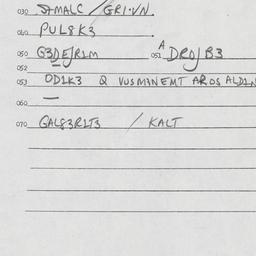 030 STMALC / GRI·VN.
040 PUL8K3
050 G3DEJR1M 051 A DROJB3
052
053 OD1K3 Q VUSM3NEMT AROS ALD1N
060 —
070 GAL83R1T3 / KALT